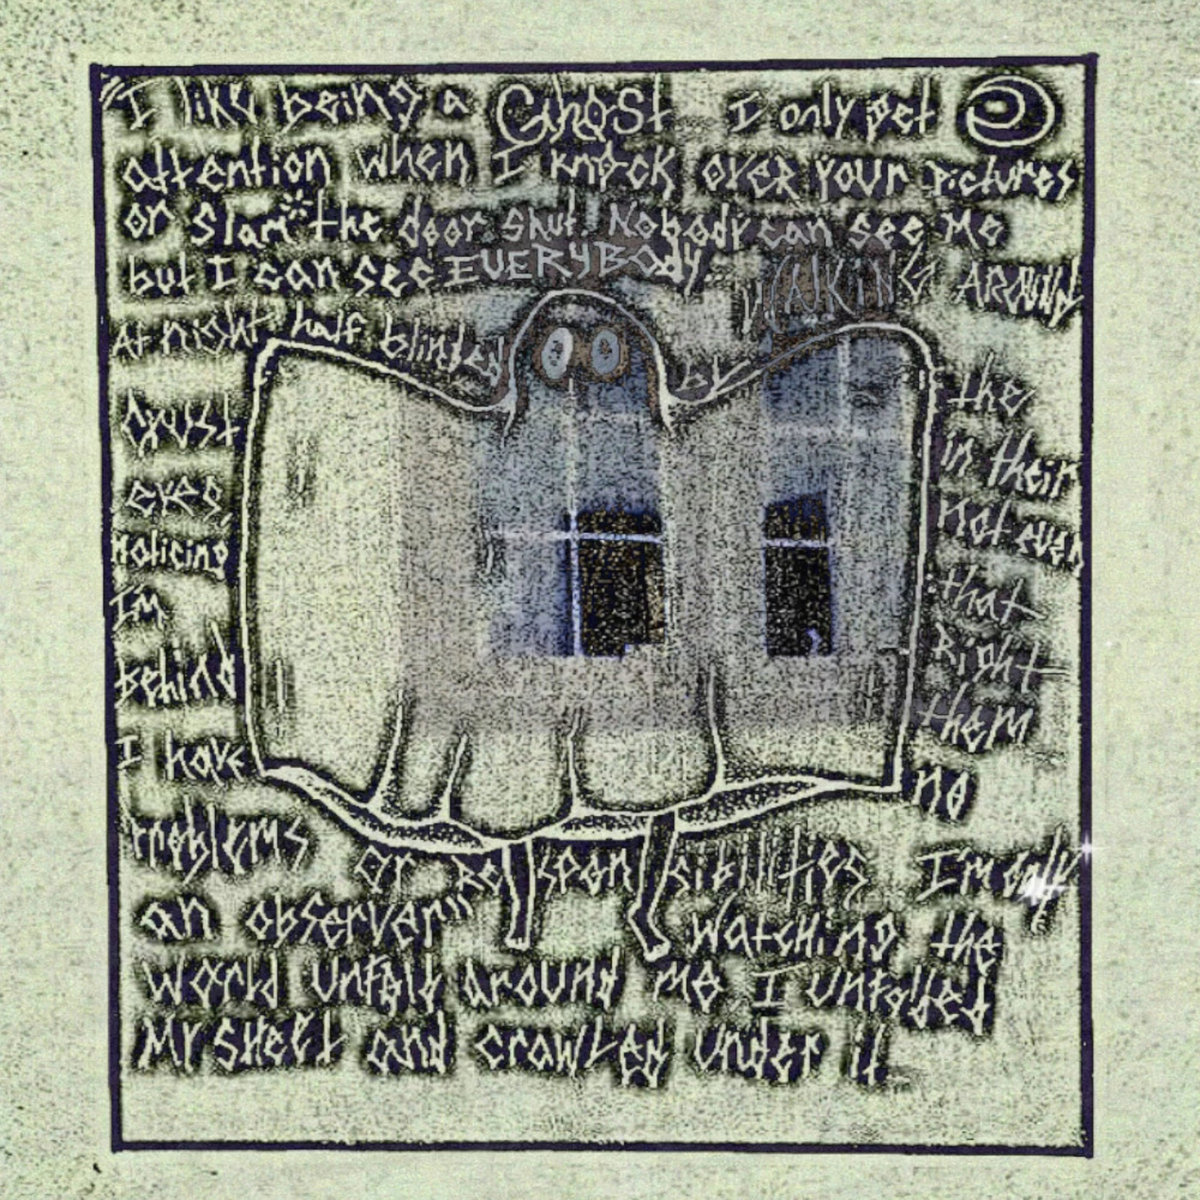 "I like being a Ghost I only get
attention when I knock over your pictures
or slam the door shut. Nobody can see me
but I can see EVERYBODY WALKING AROUND
At night half blinded by the
crust in their
eyes, not even
Noticing that
Im Right
behind them
I have no
Problems or Responsibilities I'm only
an observer" Watching the
world unfold around me I unfolded
My sheet and crawled under it